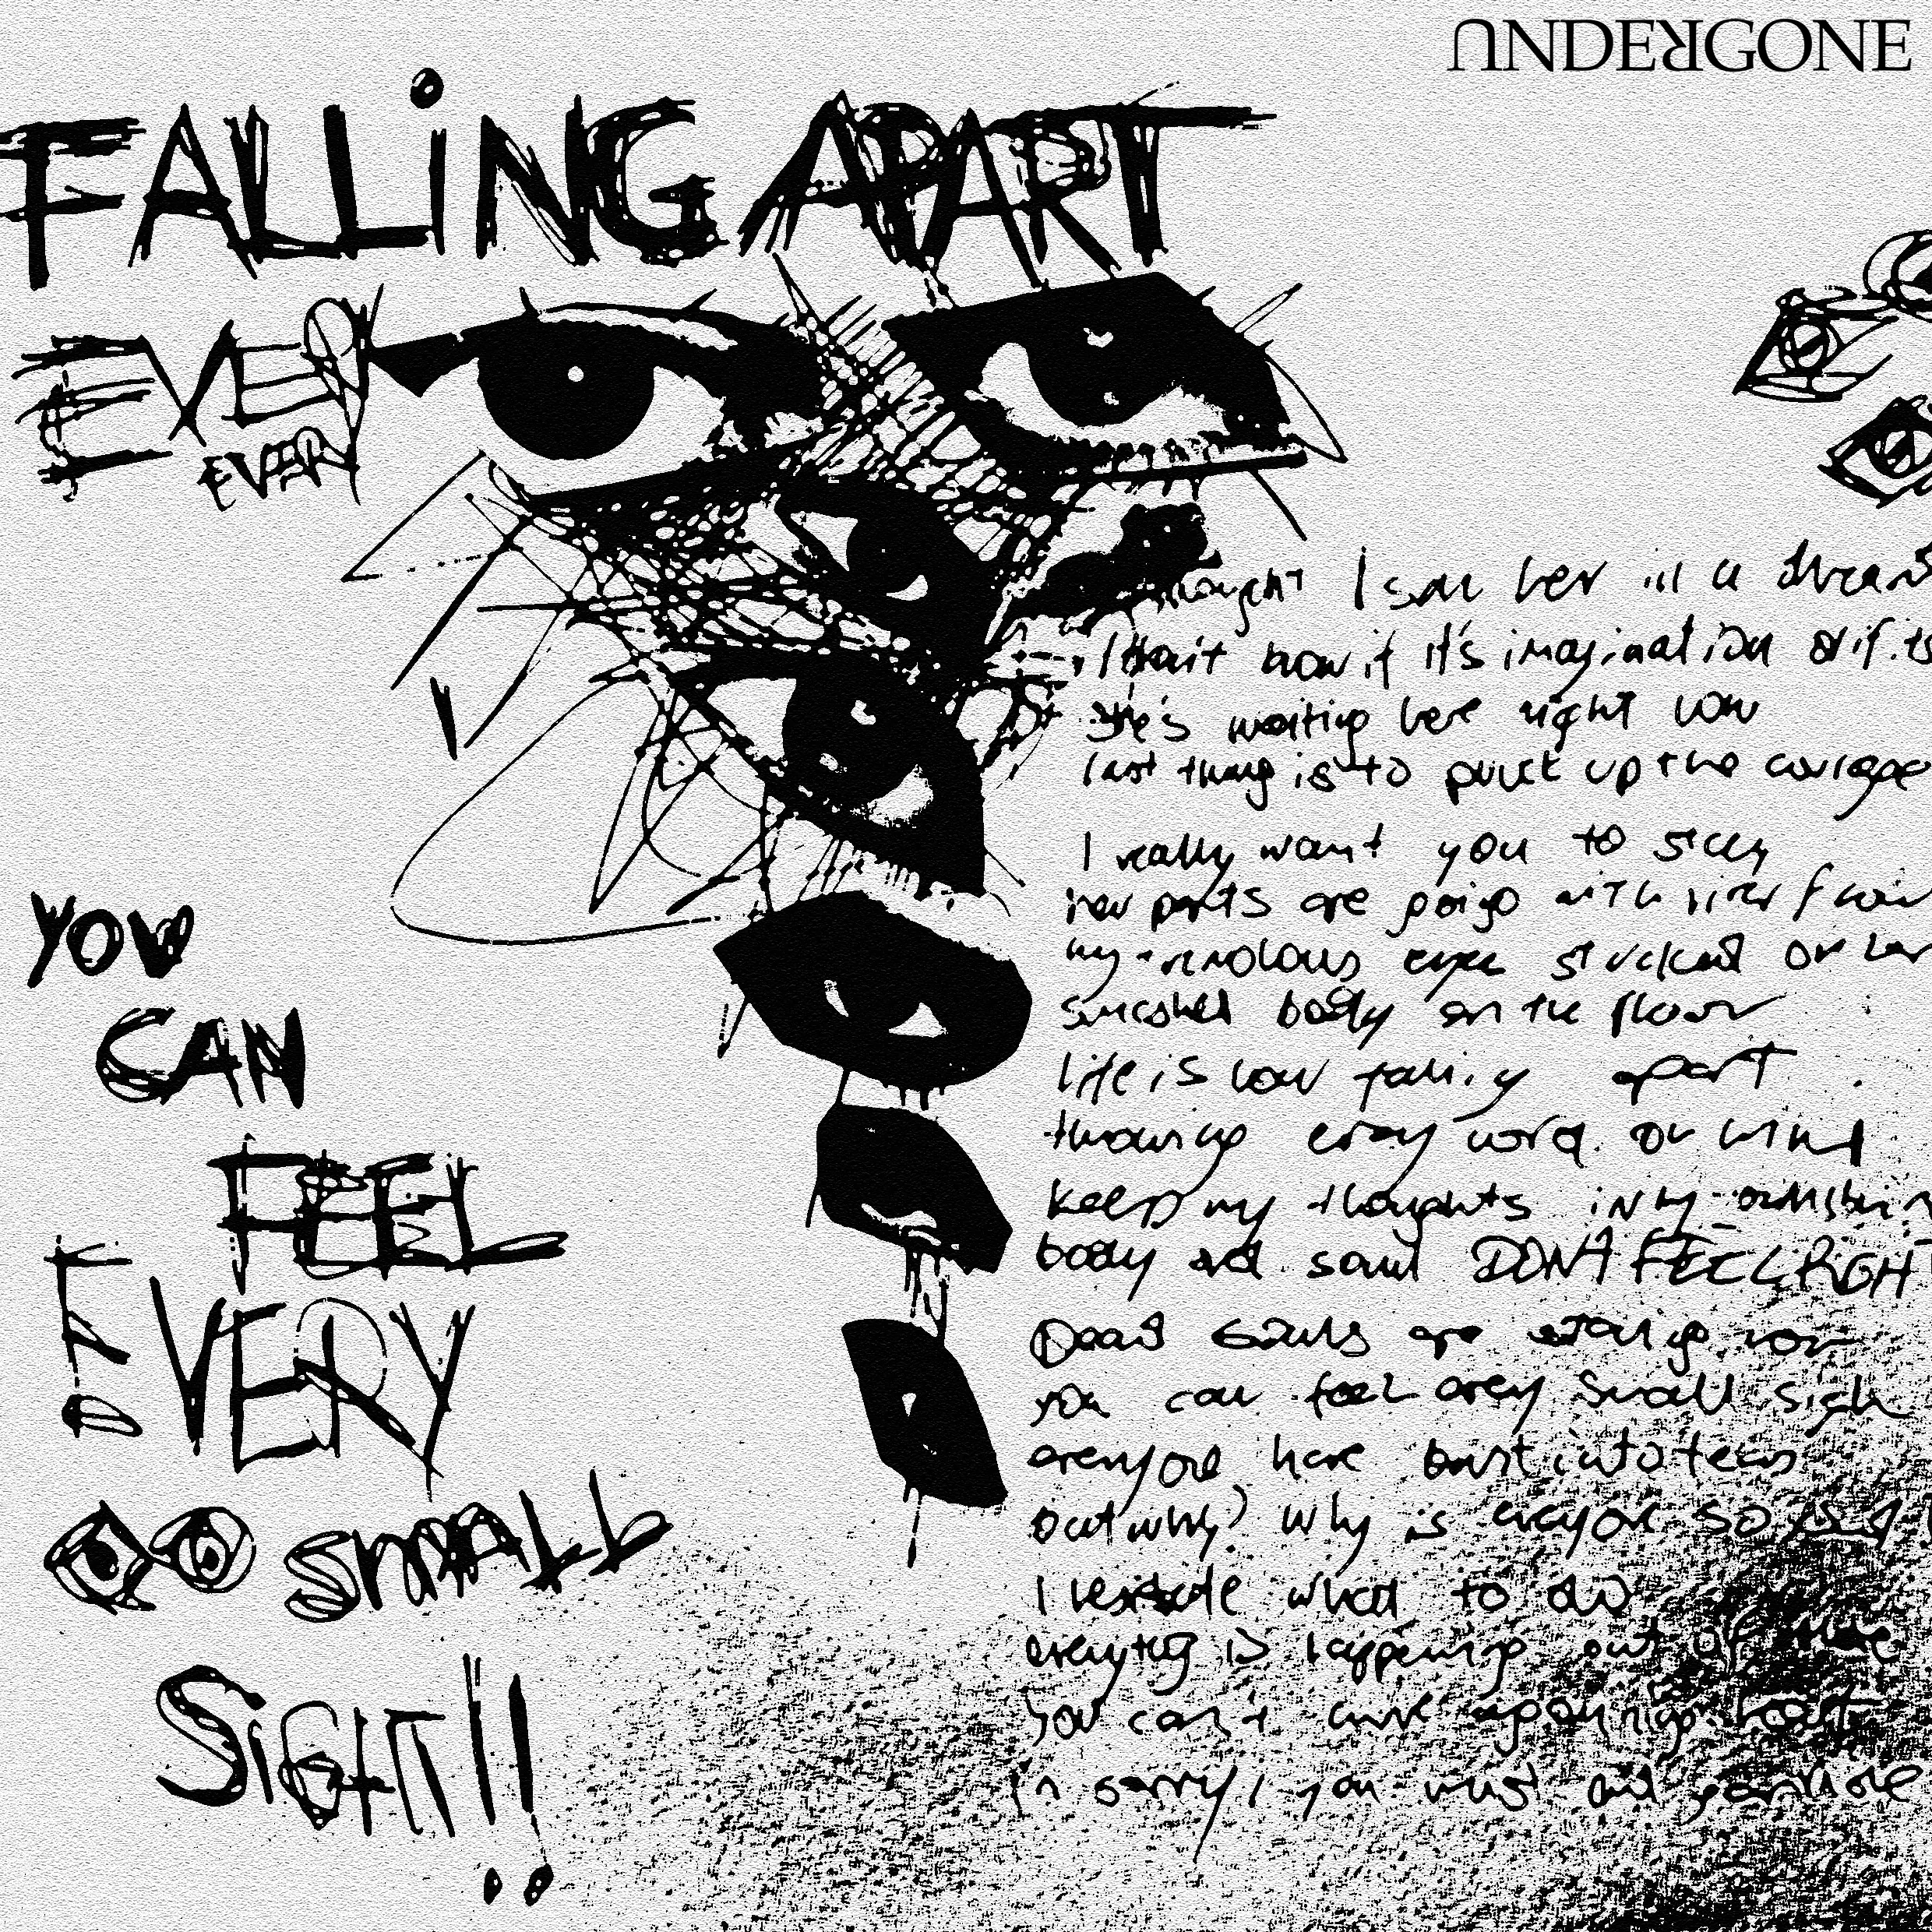 UNDERGONE
FALLiNG APART
EVER
EVER
YOU
CAN
FEEL
EVERY
SMALL
SiGHT!!
thought I saw her in a dream
I don't know if it's imagination or if it's
She's waiting here right now
last thing is to pluck up the courage
I really want you to stay
new parts are going with
my eyes stucked on her
smashed body on the floor
life is now falling apart
throwing every word on wind
keep my thoughts in my
body and soul DON'T FEEL RIGHT
Dead souls are now
you can feel every small sigh
everyone here burst into tears
but why? why is everyone so
I hesitate what to do
everything is happening out of
You can't my heart
I'm sorry, you must